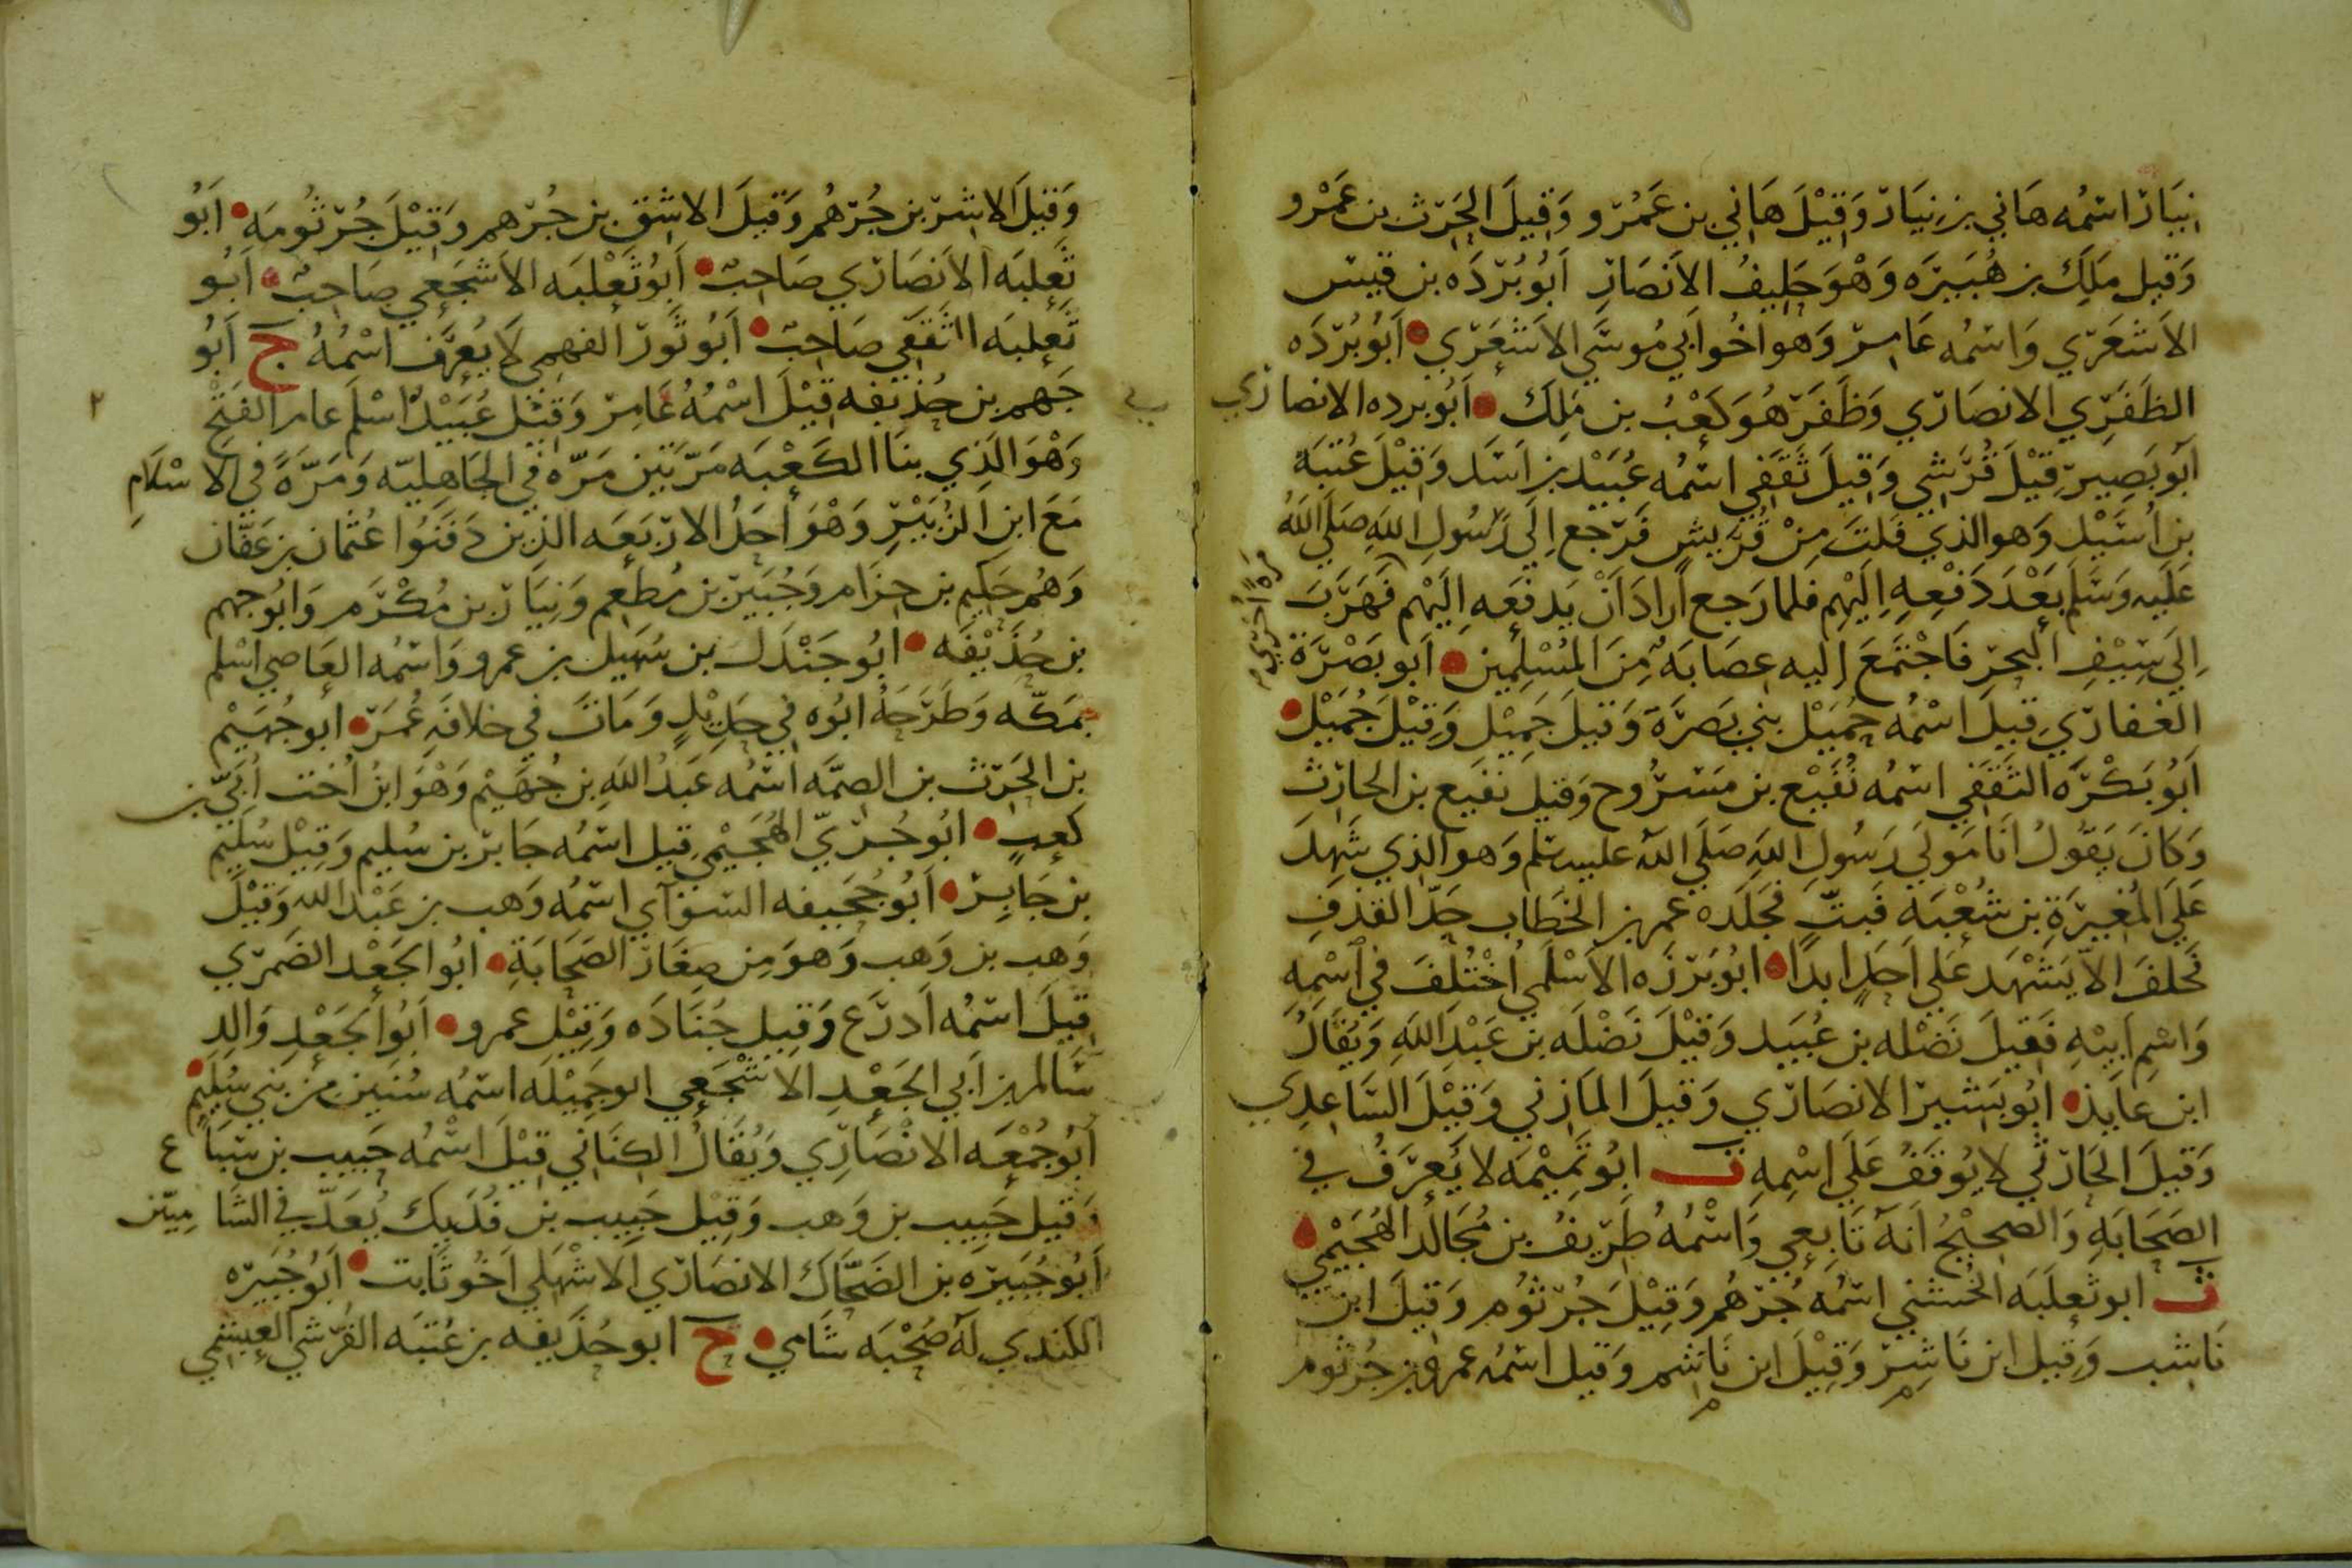 نيار اسمه هاني بن نيار وقيل هاني بن عمرو وقيل الحرث بن عمرو
وقيل ملك بن هبيره وهو حليف الانصار ابو برده بن قيس
الاشعري واسمه عامر وهو اخو ابي موسي الاشعري ابو برده
الظفري الانصاري وظفر هو كعب بن ملك ابو برده الانصاري
ابو بصير قيل قرشي وقيل ثقفي اسمه عبيد بن اسد وقيل عتبة
بن اسيد وهو الذي فلت من قريش فرجع الي رسول الله صلي الله
عليه وسلم بعد دفعه اليهم فلما رجع اراد ان يدفعه اليهم فهرب
مرة اخري
الي سيف البحر فاجتمع اليه عصابه من المسلمين ابو بصرة
الغفاري قيل اسمه حميل بني بصرة وقيل جميل وقيل جميل
ابو بكره الثقفي اسمه نفيع بن مسروح وقيل نفيع بن الحارث
وكان يقول انا مولي رسول الله صلي الله عليه سلم وهو الذي شهد
علي المغيرة بن شعبه فبت فجلده عمر بن الخطاب حد القذف
فحلف الا يشهد علي احد ابدا ابو برزه الاسلمي اختلف في اسمه
واسم ابيه فقيل نضله بن عبيد وقيل نضله بن عبد الله ويقال
ابن عابد ابو بشير الانصاري وقيل المازني وقيل الساعدي
وقيل الحارثي لا يوقف علي اسمه ت ابو تميمه لا يعرف في
الصحابه والصحيح انه تابعي واسمه طريف بن مجالد الهجيمي
ث ابو ثعلبه الخشني اسمه جرهم وقيل جرثوم وقيل ابن
ناشب وقيل ابن ناشر وقيل ابن ناشم وقيل اسمه عمرو بن جرثوم
وقيل الاشر بن جرهم وقيل الاشق بن جرهم وقيل جرثومه ابو
ثعلبه الانصاري صاحب ابو ثعلبه الاشجعي صاحب ابو
ثعلبه الثقفي صاحب ابو ثور الفهمي لا يعرف اسمه ج ابو
جهم بن حذيفه قيل اسمه عامر وقيل عبيد اسلم عام الفتح
وهو الذي بنا الكعبه مرتين مره في الجاهليه ومرة في الاسلام
مع ابن الزبير وهو احد الاربعه الذين دفنوا عثمان بن عفان
وهم حكيم بن حزام وجبير بن مطعم ونيار بن مكرم وابو جهم
بن حذيفه ابو جندل بن سهيل بن عمرو واسمه العاصي اسلم
بمكه وطرحه ابوه في حديد ومات في خلافه عمر ابو جهيم
بن الحرث بن الصمه اسمه عبد الله بن جهيم وهو ابن اخت ابي بن
كعب ابو جري الهجيمي قيل اسمه جابر بن سليم وقيل سليم
بن جابر ابو جحيفه السوآي اسمه وهب بن عبد الله وقيل
وهب بن وهب وهو من صغار الصحابة ابو الجعد الضمري
قيل اسمه ادرع وقيل جناده وقيل عمرو ابو الجعد والد
سالم بن ابي الجعد الاشجعي ابو جميله اسمه سنين من بني سليم
ابو جمعه الانصاري ويقال الكناني قيل اسمه حبيب بن سباع
وقيل حبيب بن وهب وقيل حبيب بن فديك يعد في الشاميين
ابو جبيره بن الضحاك الانصاري الاشهلي اخو ثابت ابو جبيره
الكندي له صحبه شامي ح ابو حذيفه بن عتبه القرشي العبشمي